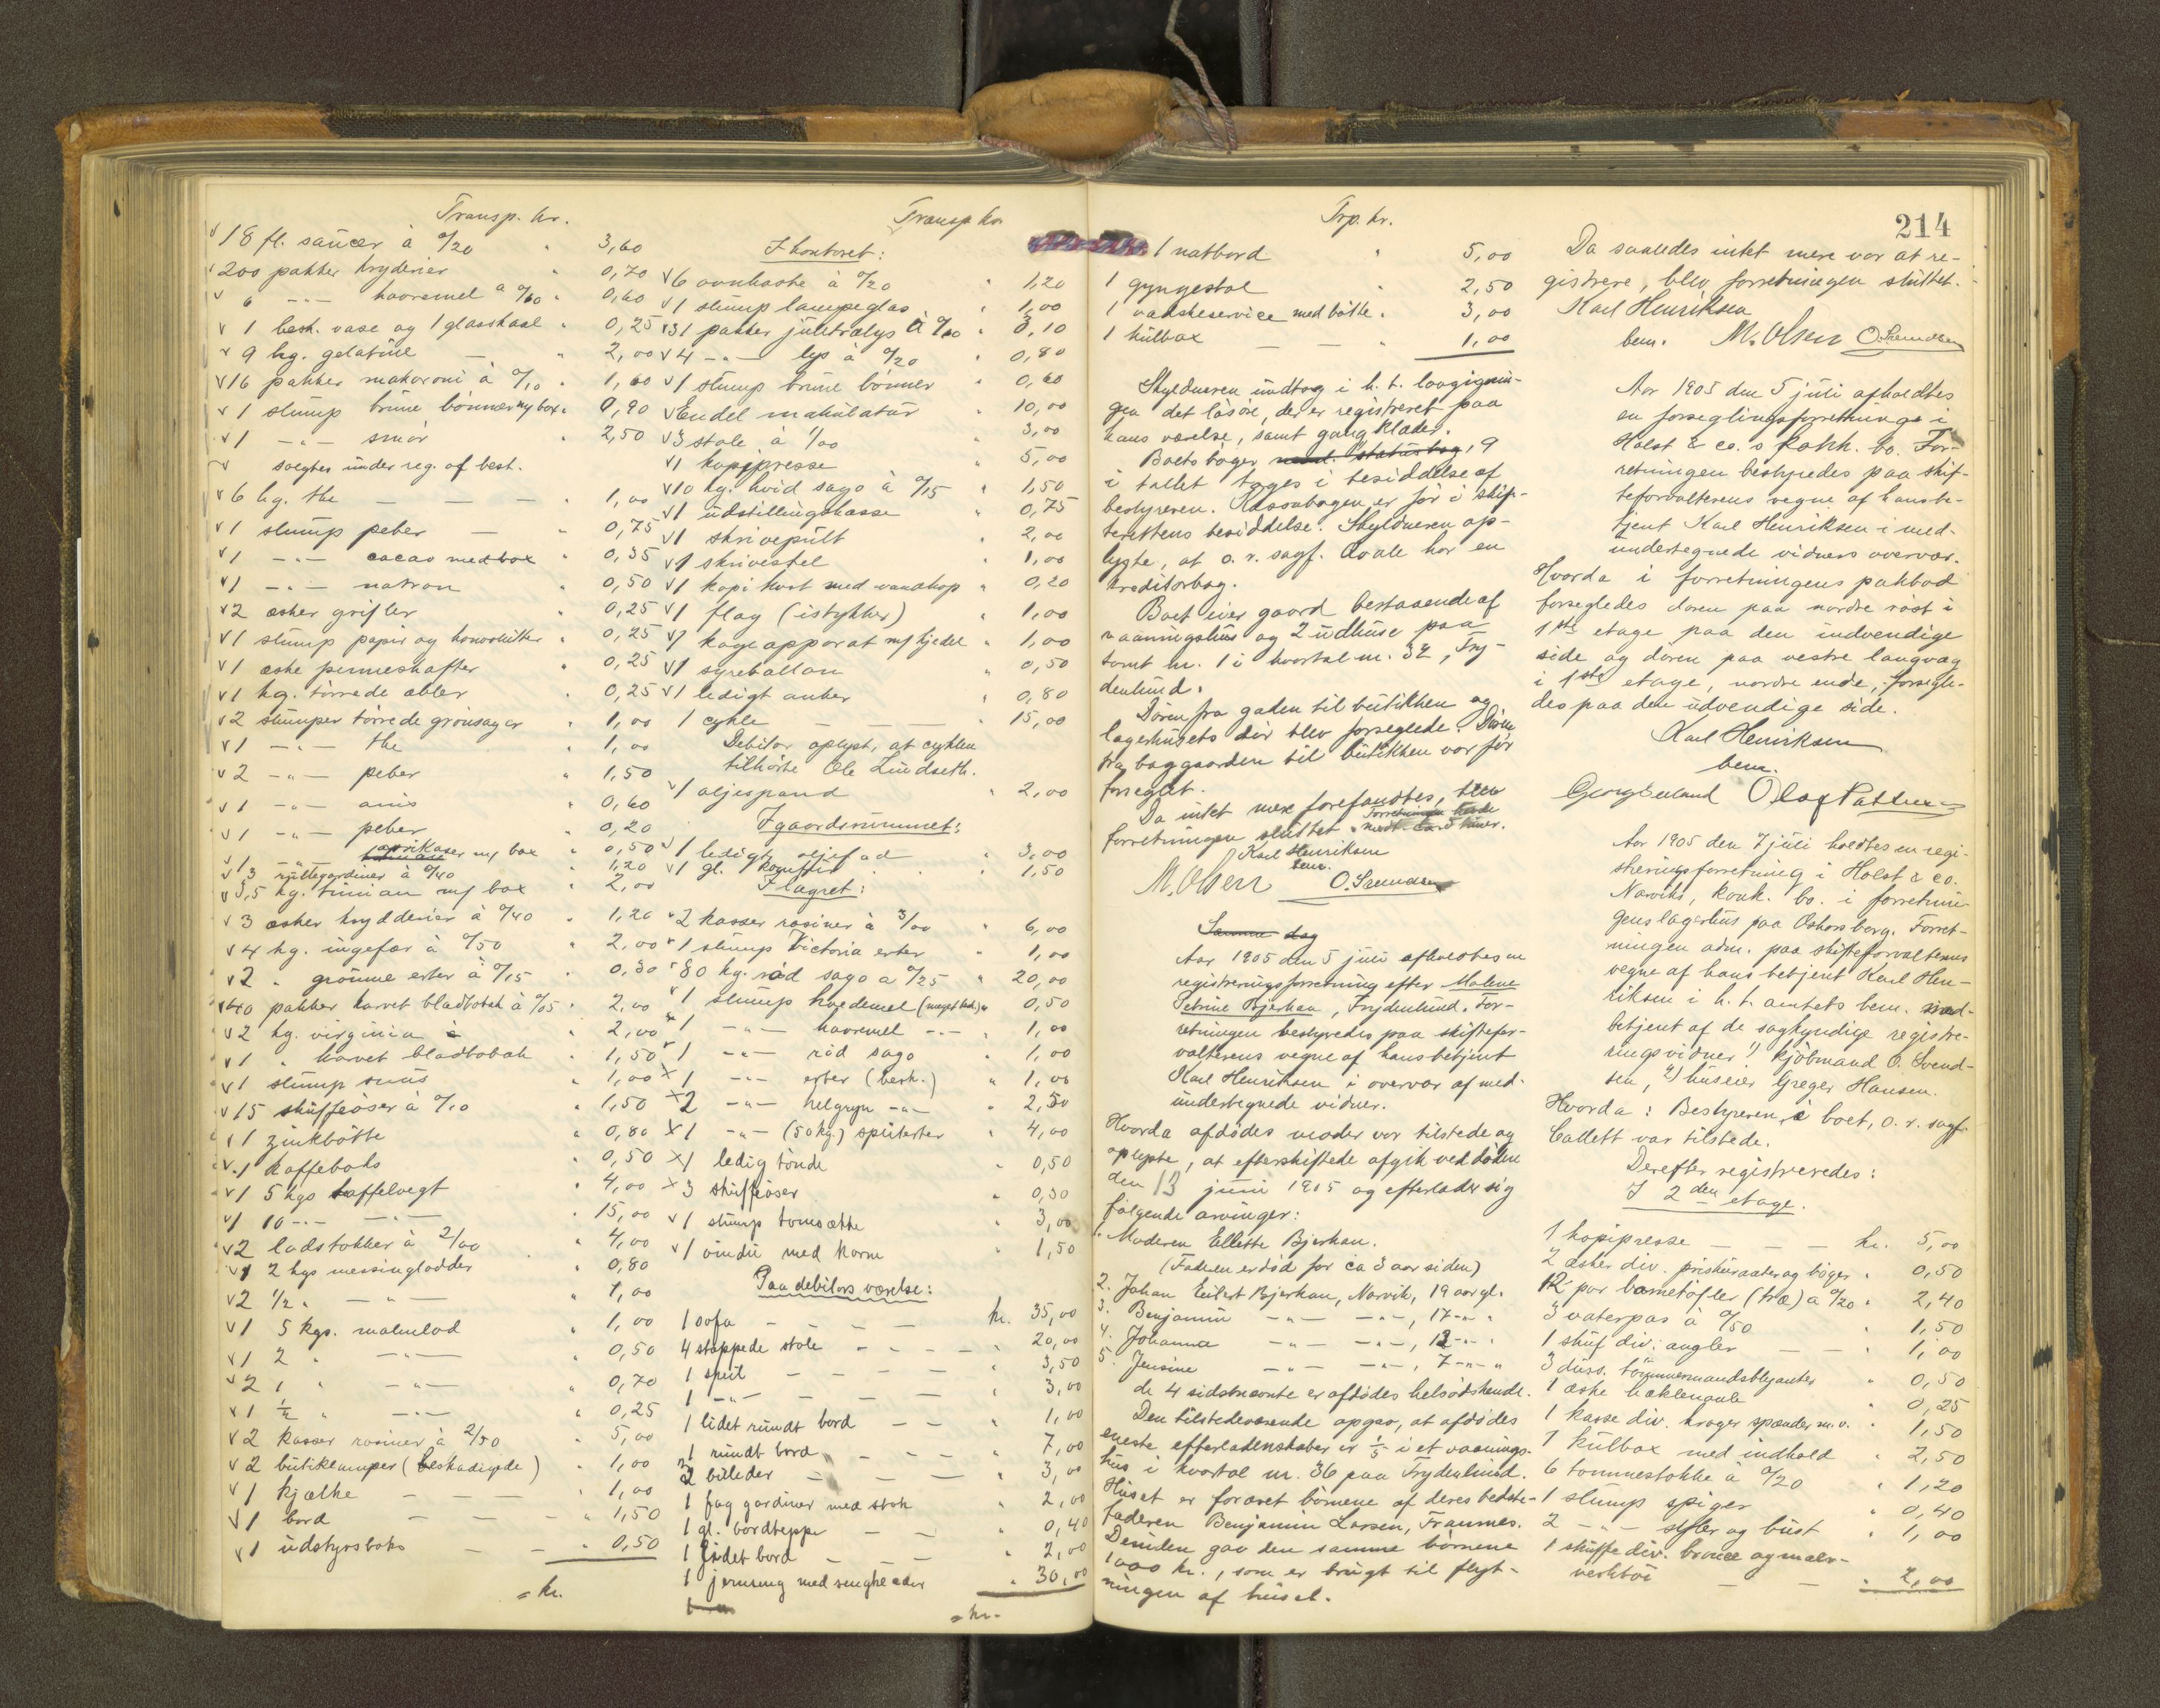 Transp. kr.
v 18 fl. saucer à 0/20 " 3,60
v 200 pakker kryderier " 0,70
v 6 -"- havremel à 0/10 " 0,60
v 1 besk. vase og 1 glasskaal " 0,25
v 9 kg. gelatine — " 2,00
v 16 pakker makaroni à 0/10 " 1,60
v 1 slump brune bønner m/ box " 0,90
v 1 -"- smør " 2,50
v solgtes under reg. af best.
v 6 kg. the — — — " 1,00
v 1 slump peber — " 0,75
v 1 -"- cacao med box " 0,35
v 1 -"- natron " 0,50
v 2 æsker grifler " 0,25
v 1 slump papir og konvolutter " 0,25
v 1 æske penneskafter " 0,25
v 1 kg. tørrede æbler " 0,25
v 2 slumper tørrede grønsager " 1,00
v 1 -"- the " 1,00
v 2 -"- peber " 1,50
v 1 -"- anis " 0,60
v 1 -"- peber " 0,20
v 1 -"- aprikoser m/ box " 0,50
v 3 rullegardiner à 0/40 " 1,20
v 3,5 kg. timian m/ box " 2,00
v 3 æsker krydderier à 0/40 " 1,20
v 4 kg. ingefær à 0/50 " 2,00
v 2 " grønne erter à 0/15 " 0,30
v 40 pakker karvet bladtobak à 0/05 " 2,00
v 2 kg. virginia à " 2,00
v 1 " karvet bladtobak " 1,50
v 1 slump snus " 1,00
v 15 skuffeøser à 0/10 " 1,50
v 1 zinkbøtte " 0,80
v 1 kaffeboks " 0,50
v 1 5 kgs kaffelvegt " 4,00
v 1 10 -"- -"- " 15,00
v 2 ladstokker à 2/00 " 4,00
v 1 2 kgs messinglodder " 0,80
v 2 1/2 " -"- " 1,00
v 1 5 kgs. malmlod " 1,00
v 1 2 " -"- " 0,50
v 2 1 " -"- " 0,70
v 1 1/2 " -"- " 0,25
v 2 kasser rosiner à 2/50 " 5,00
v 2 butiklamper (beskadigede) " 1,00
v 1 kjælke — — — " 1,00
v 1 bord — — — " 1,50
v 1 udstyrsboks — — " 0,50
= kr.
Transp. kr.
I kontoret:
v 6 ovnkoste à 0/20 " 1,20
v 1 slump lampeglas " 1,00
v 31 pakker juletrælys à 0/10 " 3,10
v 4 -"- lys à 0/20 " 0,80
v 1 slump brune bønner " 0,60
v Endel makulatur " 10,00
v 3 stole à 1/00 " 3,00
v 1 kopipresse " 5,00
v 10 kg. hvid sago à 0/15 " 1,50
v 1 udstillingskasse " 0,75
v 1 skrivepult " 2,00
v 1 skrivestel " 1,00
v 1 kopi kost med vandkop " 0,20
v 1 flag (istykker) " 1,00
v 1 kogeapparat m/ kjedel " 1,00
v 1 syreballon " 0,50
v 1 ledigt anker " 0,80
1 cykle — — — " 15,00
Debitor oplyst, at cyklen
tilhørte Ole Lindseth.
v 1 oljespand " 2,00
I gaardsrummet:
v 1 ledigt oljefad " 3,00
v 1 gl. kogeffir " 1,50
I lagret:
v 2 kasser rosiner à 3/00 " 6,00
v 1 slump Victoria erter " 1,00
v 80 kg. rød sago à 0/25 " 20,00
v 1 slump hvedemel (meget besk.) " 0,50
v 1 -"- havremel -"- " 1,00
v 1 -"- rød sago " 1,00
x 1 -"- erter (besk.) " 1,00
x 2 -"- helgryn -"- " 2,50
x 1 -"- (50 kg.) spliterter " 4,00
x 1 ledig tønde " 0,50
x 3 skuffeøser " 0,30
v 1 slump tomsække " 3,00
v 1 vindu med karm " 1,50
Paa debitors værelse:
1 sofa — — — — kr. 35,00
4 stoppede stole — — — " 20,00
1 speil — — — — " 3,50
1 -"- — — — " 3,00
1 lidet rundt bord — — " 1,00
1 rundt bord — — — " 7,00
2 billeder — — — " 3,00
1 fag gardiner med stok " 2,00
1 gl. bordteppe — — " 0,40
1 lidet bord — — — " 2,00
1 jernseng med sengklæder " 30,00
= kr.
Trp. kr.
1 natbord " 5,00
1 gyngestol " 2,50
1 vaskeservice med bøtte " 3,00
1 kulbox — — " 1,00
Skyldneren undtog i h. t. lovgivnin-
gen det løsøre, der er registreret paa
hans værelse, samt gangklæder.
Boets bøger statusbog, 9
i tallet toges i besiddelse af
bestyreren. Kassabogen er før i skif-
terettens besiddelse. Skyldneren op-
lyste, at o. r. sagf. Aale har en
kreditorbog.
Boet eier gaard bestaaende af
vaaningshus og 2 udhuse paa
tomt nr. 1 i kvartal nr. 32, Fry-
denlund.
Døren fra gaden til butikken og
lagerhusets dør blev forseglede. Døren
fra baggaarden til butikken var før
forseglet.
Da intet mere forefandtes, blev
forretningen sluttet. Forretningen havde
medt. timer.
Karl Henriksen
bem.
M. Olsen O. Svendsen
Samme dag
Aar 1905 den 5 juli afholdtes en
registreringsforretning efter Malene
Petrine Bjerkan, Frydenlund. For-
retningen bestyredes paa skiftefor-
valterens vegne af hans betjent
Karl Henriksen i overvær af med-
undertegnede vidner.
Hvorda afdødes moder var tilstede og
oplyste, at efterskiftede afgik ved døden
den 13 juni 1905 og efterlader sig
følgende arvinger:
1. Moderen Ellette Bjerkan.
(Faderen er død for ca 3 aar siden)
2. Johan Eilert Bjerkan, Narvik, 19 aar gl.
3. Benjamin -"- -"-, 17 -"- "
4. Johanna -"- -"-, 12 -"- "
5. Jensine -"- -"-, 7 -"- "
de 4 sidstnævnte er afdødes helsødskende.
Den tilstedeværende opgav, at afdødes
eneste efterladenskaber er 1/5 i et vaanings-
hus i kvartal nr. 36 paa Frydenlund.
Huset er foræret børnene af deres bedste-
faderen Benjamin Larsen, Framnes.
Desuden gav den samme børnene
1000 kr., som er brugt til flyt-
ningen af huset.
214
Da saaledes intet mere var at re-
gistrere, blev forretningen sluttet.
Karl Henriksen
bem. M. Olsen O. Svendsen
Aar 1905 den 5 juli afholdtes
en forseglingsforretninge i
Holst & co.s konk. bo. For-
retningen bestyredes paa skif-
teforvalterens vegne af hans be-
tjent Karl Henriksen i med-
undertegnede vidners overvær.
Hvorda i forretningens pakbod
forsegledes døren paa nordre røst i
1ste etage paa den indvendige
side og døren paa vestre langvæg
i 1ste etage, nordre ende, forsegle-
des paa den udvendige side.
Karl Henriksen
bem.
Olaf
Aar 1905 den 7 juli holdtes en regi-
streringsforretning i Holst & co.
Narviks, konk. bo. i forretnin-
gens lagerhus paa Oskarsberg. Forret-
ningen adm. paa skifteforvalterens
vegne af hans betjent Karl Hen-
riksen i h. t. amtets bem. med-
betjent af de sagkyndige registre-
ringsvidner 1) kjøbmand O. Svend-
sen, 2) huseier Greger Hansen.
Hvorda: Bestyreren i boet, o. r. sagf.
Callett var tilstede.
Derefter registreredes:
I 2den etage.
1 kopipresse — — — kr. 5,00
2 æsker div. priskuranter og bøger " 0,50
12 par barnetøfler (træ) à 0/20 " 2,40
3 vaterpas à 0/50 " 1,50
1 skuf div. angler — — " 1,00
3 duss. tømmermandsblyanter " 0,50
1 æske hæklenaale " 0,25
1 kasse div. kroger spænder m. v. " 1,50
1 kulbox med indhold " 2,50
6 tommestokke à 0/20 " 1,20
1 slump spiger " 0,40
2 -"- stifter og bust " 1,00
1 skuffe div. bronce og maler-
verktøi — — " 2,00